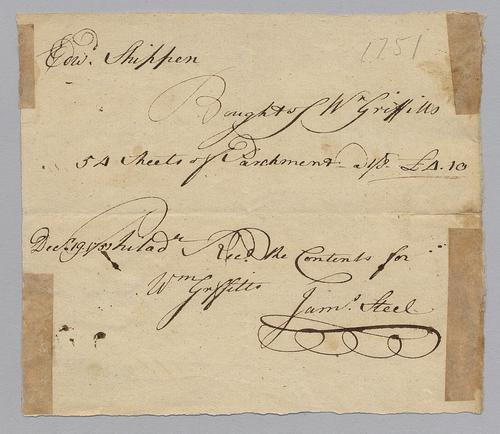 1751
Edwd. Shippen
Bought of Wm Griffitts
54 Sheets of Parchment a 1/8 £4.10
Philade. Recd the Contents for
Wm Griffitts
James Steel